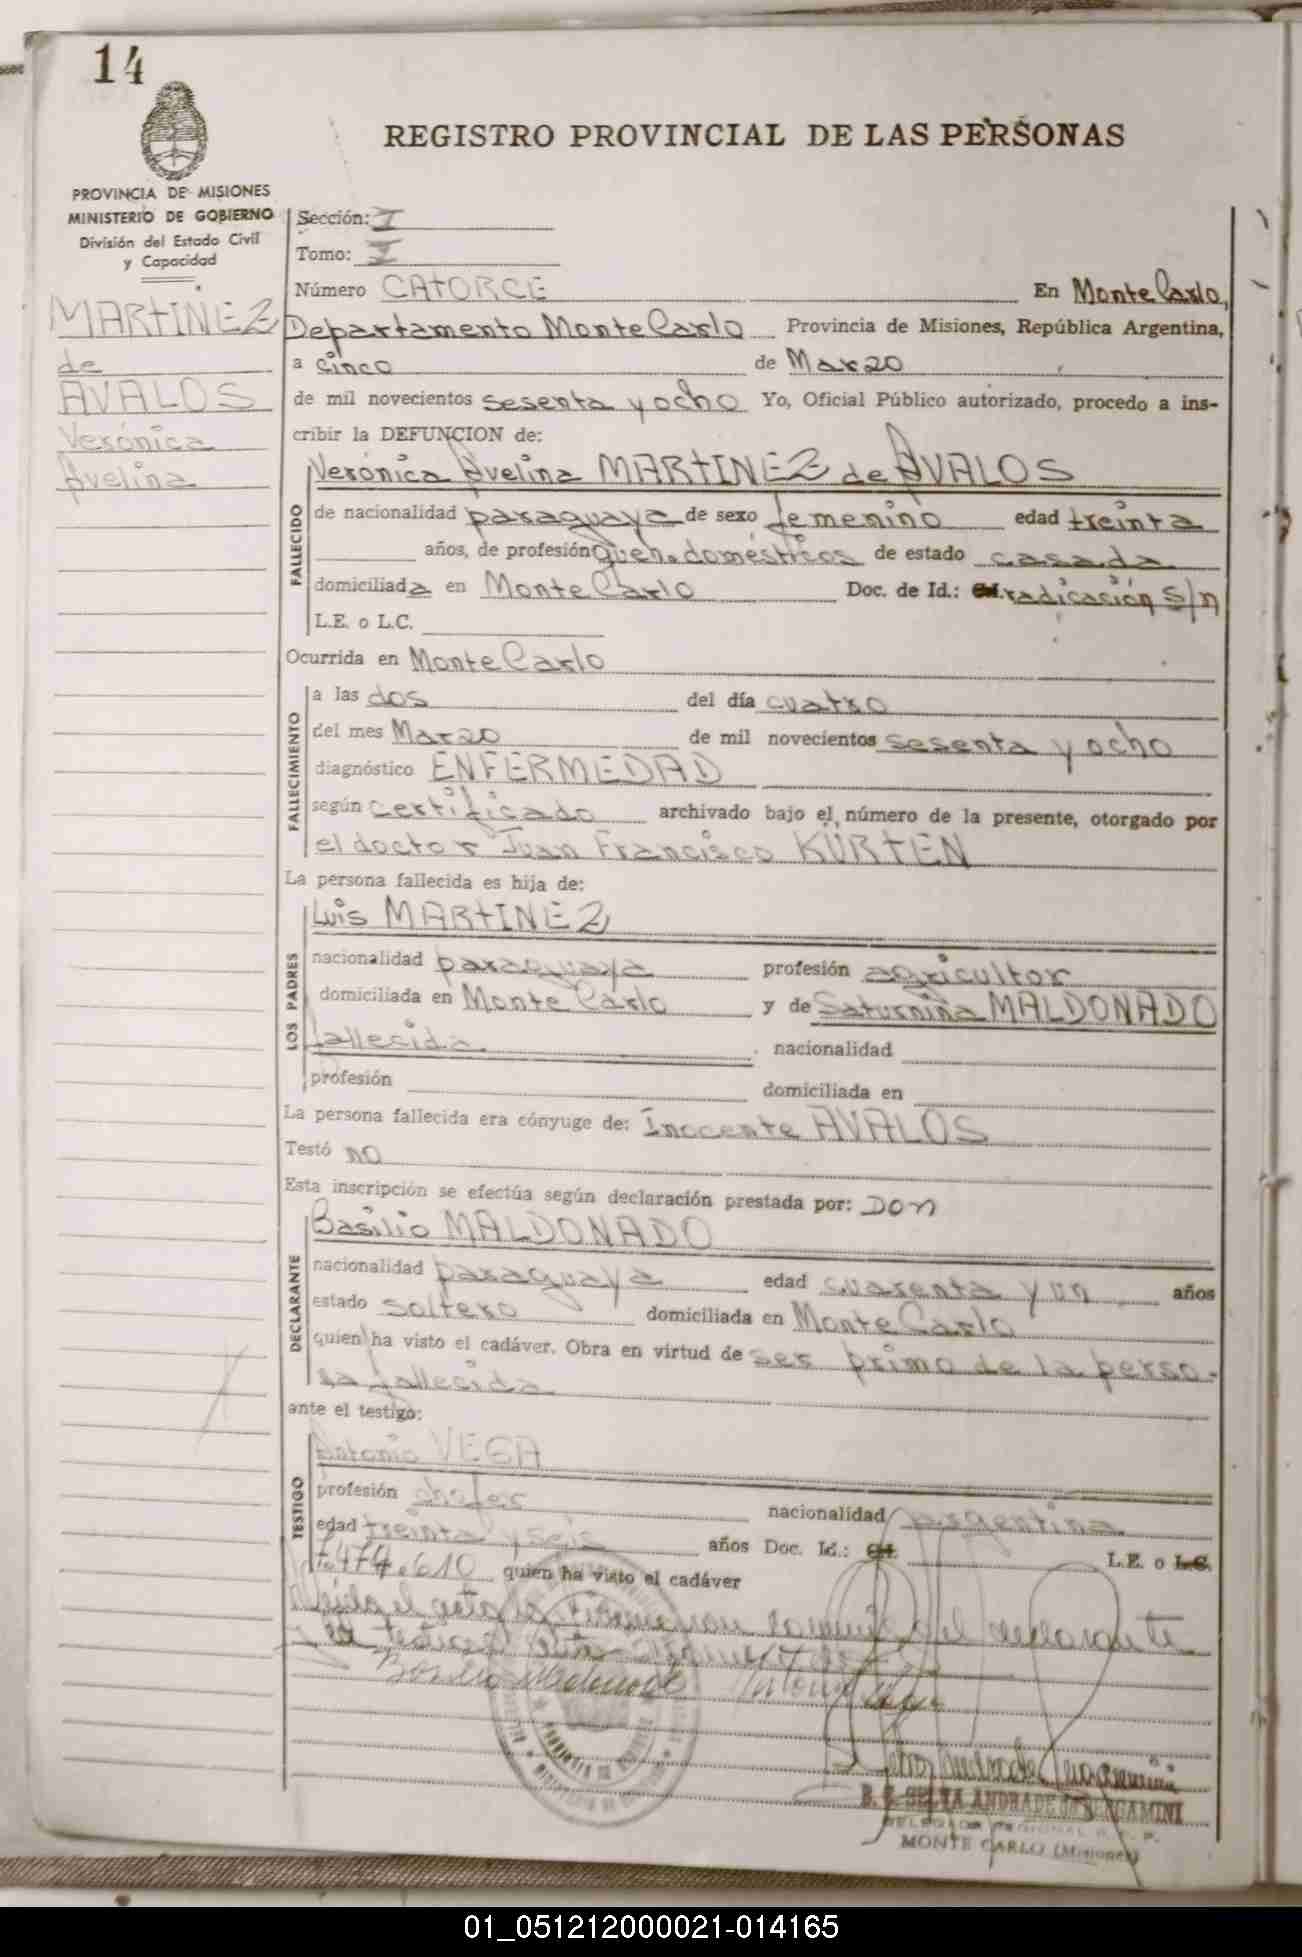 14
REGISTRO PROVINCIAL DE LAS PERSONAS
PROVINCIA DE MISIONES
MINISTERIO DE GOBIERNO
División del Estado Civil
y Capacidad
MARTINEZ
de
AVALOS
Verónica
Avelina
Sección: I
Tomo: I
Número CATORCE En Monte Carlo,
Departamento Monte Carlo Provincia de Misiones, República Argentina,
a cinco de Marzo
de mil novecientos sesenta y ocho Yo, Oficial Público autorizado, procedo a ins-
cribir la DEFUNCION de:
Verónica Avelina MARTINEZ de AVALOS
FALLECIDO
de nacionalidad paraguaya de sexo femenino edad treinta
años, de profesión queh. domésticos de estado casada
domiciliada en Monte Carlo Doc. de Id.: radicación s/n
L.E. o L.C.
Ocurrida en Monte Carlo
FALLECIMIENTO
a las dos del día cuatro
del mes Marzo de mil novecientos sesenta y ocho
diagnóstico ENFERMEDAD
según certificado archivado bajo el número de la presente, otorgado por
el doctor Juan Francisco KÜRTEN
La persona fallecida es hija de:
LOS PADRES
Luis MARTINEZ
nacionalidad paraguaya profesión agricultor
domiciliada en Monte Carlo y de Saturnina MALDONADO
fallecida. nacionalidad
profesión domiciliada en
La persona fallecida era cónyuge de: Inocente AVALOS
Testó no
Esta inscripción se efectúa según declaración prestada por: Don
DECLARANTE
Basilio MALDONADO
nacionalidad paraguaya edad cuarenta y un años
estado soltero domiciliada en Monte Carlo
quien ha visto el cadáver. Obra en virtud de ser primo de la perso-
na fallecida
ante el testigo:
TESTIGO
Antonio VEGA
profesión chofer nacionalidad argentina
edad treinta y seis años Doc. Id.: L.E. o L.C.
7.474.610 quien ha visto el cadáver
Leída el acta la firman con conmigo el declarante
y el testigo
Basilio Maldonado Antonio Vega
B. S. SELVA ANDRADE de BERGAMINI
DELEGADA REGIONAL R. P. P.
MONTE CARLO (Misiones)
01_051212000021-014165